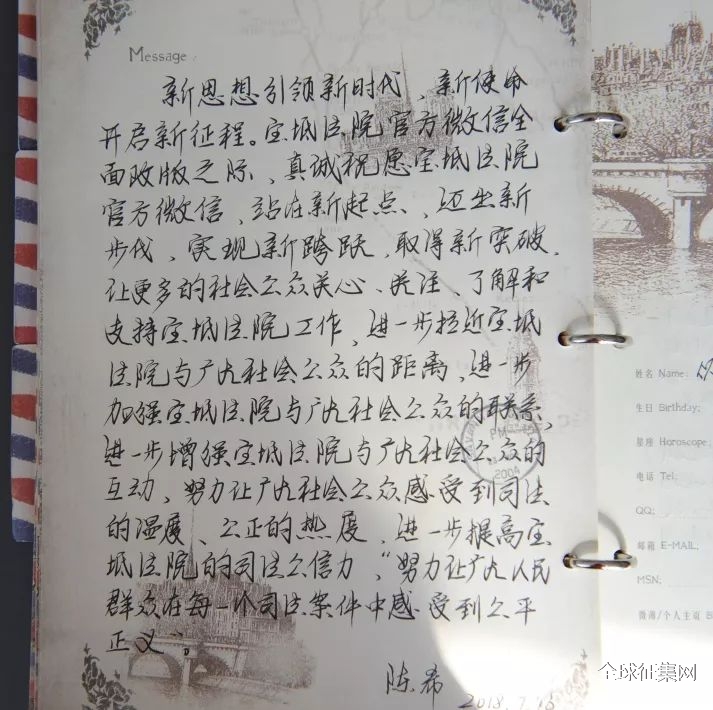 Message:
新思想引领新时代，新使命
开启新征程。宝坻法院官方微信全
面改版之际，真诚祝愿宝坻法院
官方微信，站在新起点，迈出新
步伐，实现新跨跃，取得新突破，
让更多的社会公众关心、关注、了解和
支持宝坻法院工作，进一步拉近宝坻
法院与广大社会公众的距离，进一步
加强宝坻法院与广大社会公众的联系，
进一步增强宝坻法院与广大社会公众的
互动，努力让广大社会公众感受到司法
的温度、公正的热度，进一步提高宝
坻法院的司法公信力，“努力让广大人民
群众在每一个司法案件中感受到公平
正义”。
陈希
2018.7.
PM
2004
姓名 Name:
生日 Birthday:
星座 Horoscope:
电话 Tel:
QQ:
邮箱 E-MAIL:
MSN:
微博/个人主页 B
全球征集网